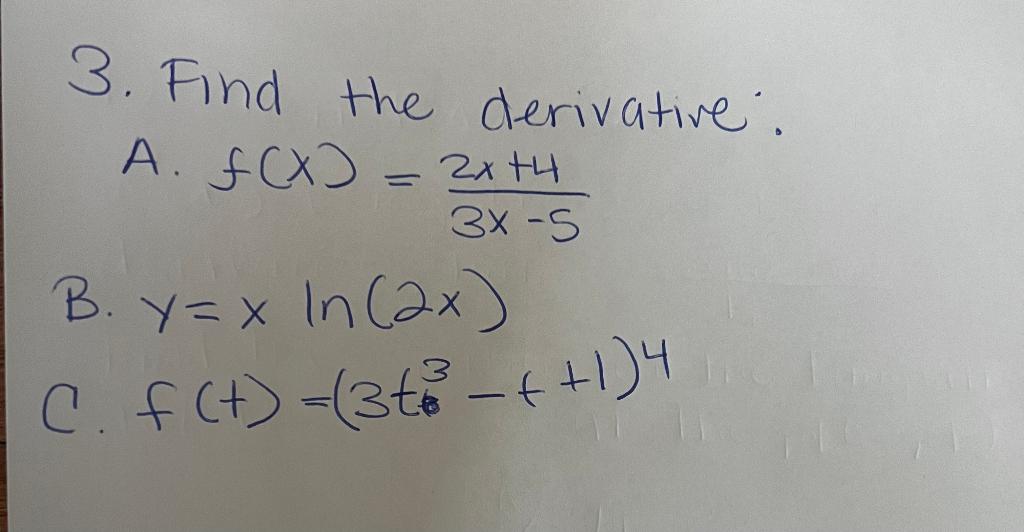 3. Find the derivative:
A. f(x) = \frac{2x+4}{3x-5}
B. y = x ln(2x)
C. f(t) = (3t^3 - t + 1)^4